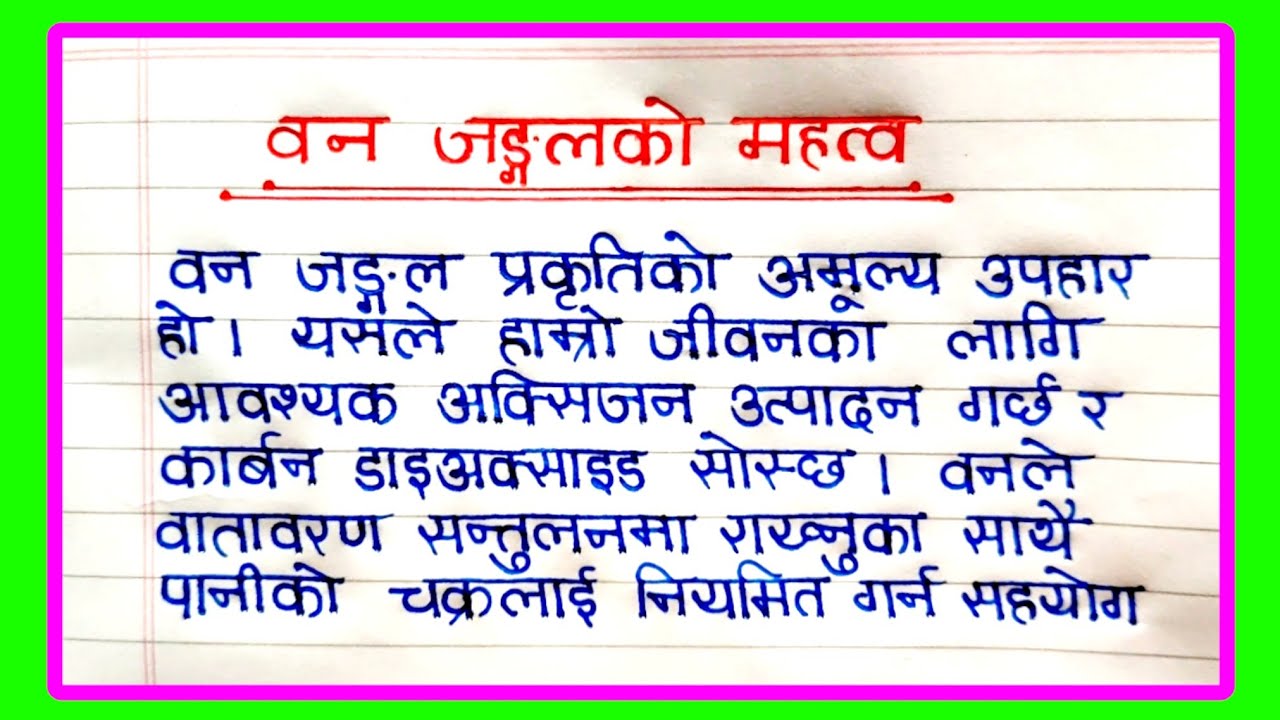 वन जङ्गलको महत्व
वन जङ्गल प्रकृतिको अमूल्य उपहार
हो । यसले हाम्रो जीवनका लागि
आवश्यक अक्सिजन उत्पादन गर्छ र
कार्बन डाइअक्साइड सोस्छ । वनले
वातावरण सन्तुलनमा राख्नुका साथै
पानीको चक्रलाई नियमित गर्न सहयोग